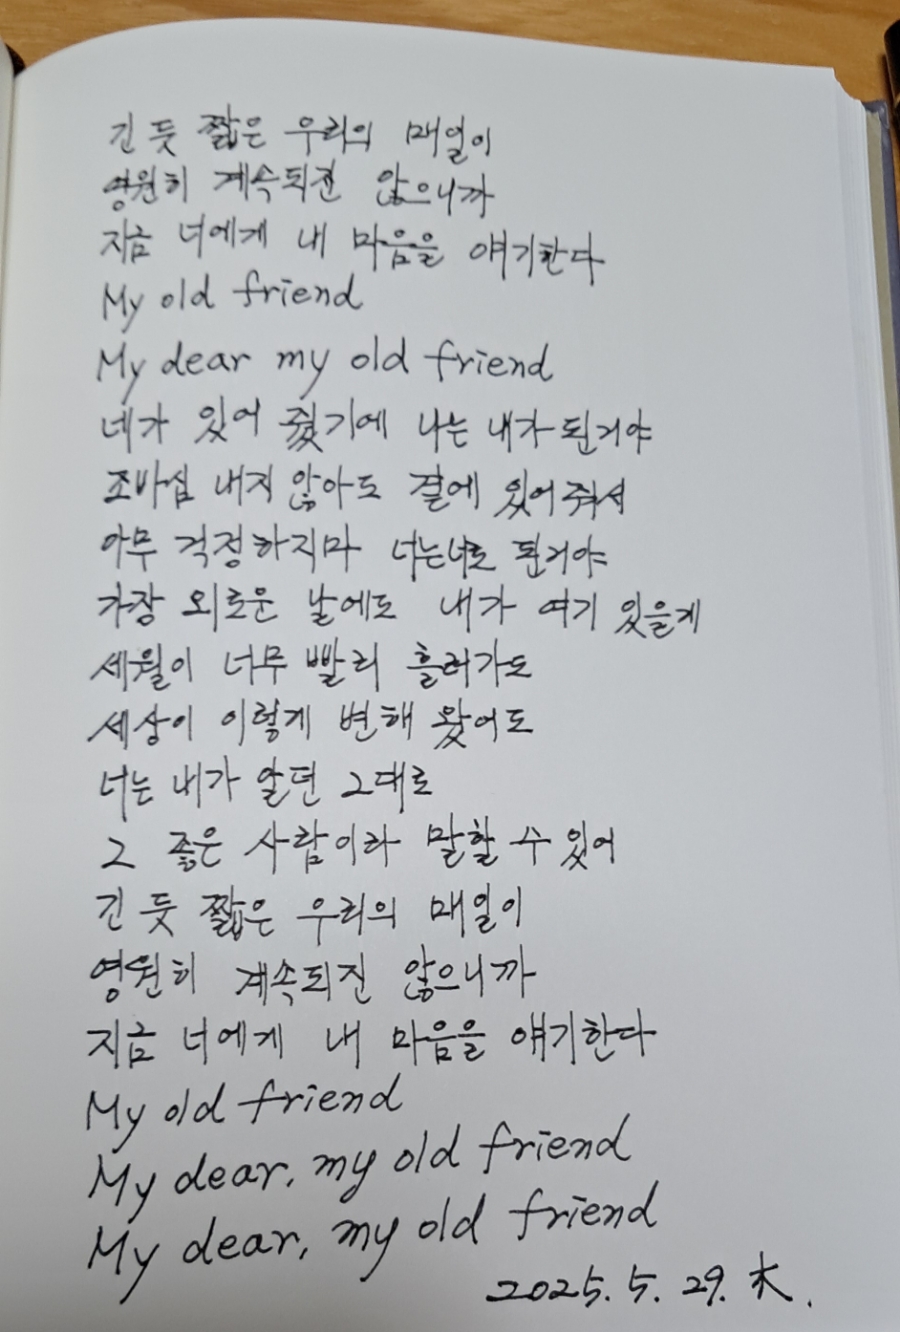 긴 듯 짧은 우리의 매일이
영원히 계속되진 않으니까
지금 너에게 내 마음을 얘기한다
My old friend
My dear my old friend
네가 있어 줬기에 나는 내가 된거야
조바심 내지 않아도 곁에 있어줘서
아무 걱정하지마 너는너로 된거야
가장 외로운 날에도 내가 여기 있을게
세월이 너무 빨리 흘러가도
세상이 이렇게 변해 왔어도
너는 내가 알던 그대로
그 좋은 사람이라 말할 수 있어
긴 듯 짧은 우리의 매일이
영원히 계속되진 않으니까
지금 너에게 내 마음을 얘기한다
My old friend
My dear, my old friend
My dear, my old friend
2025. 5. 29. 木.